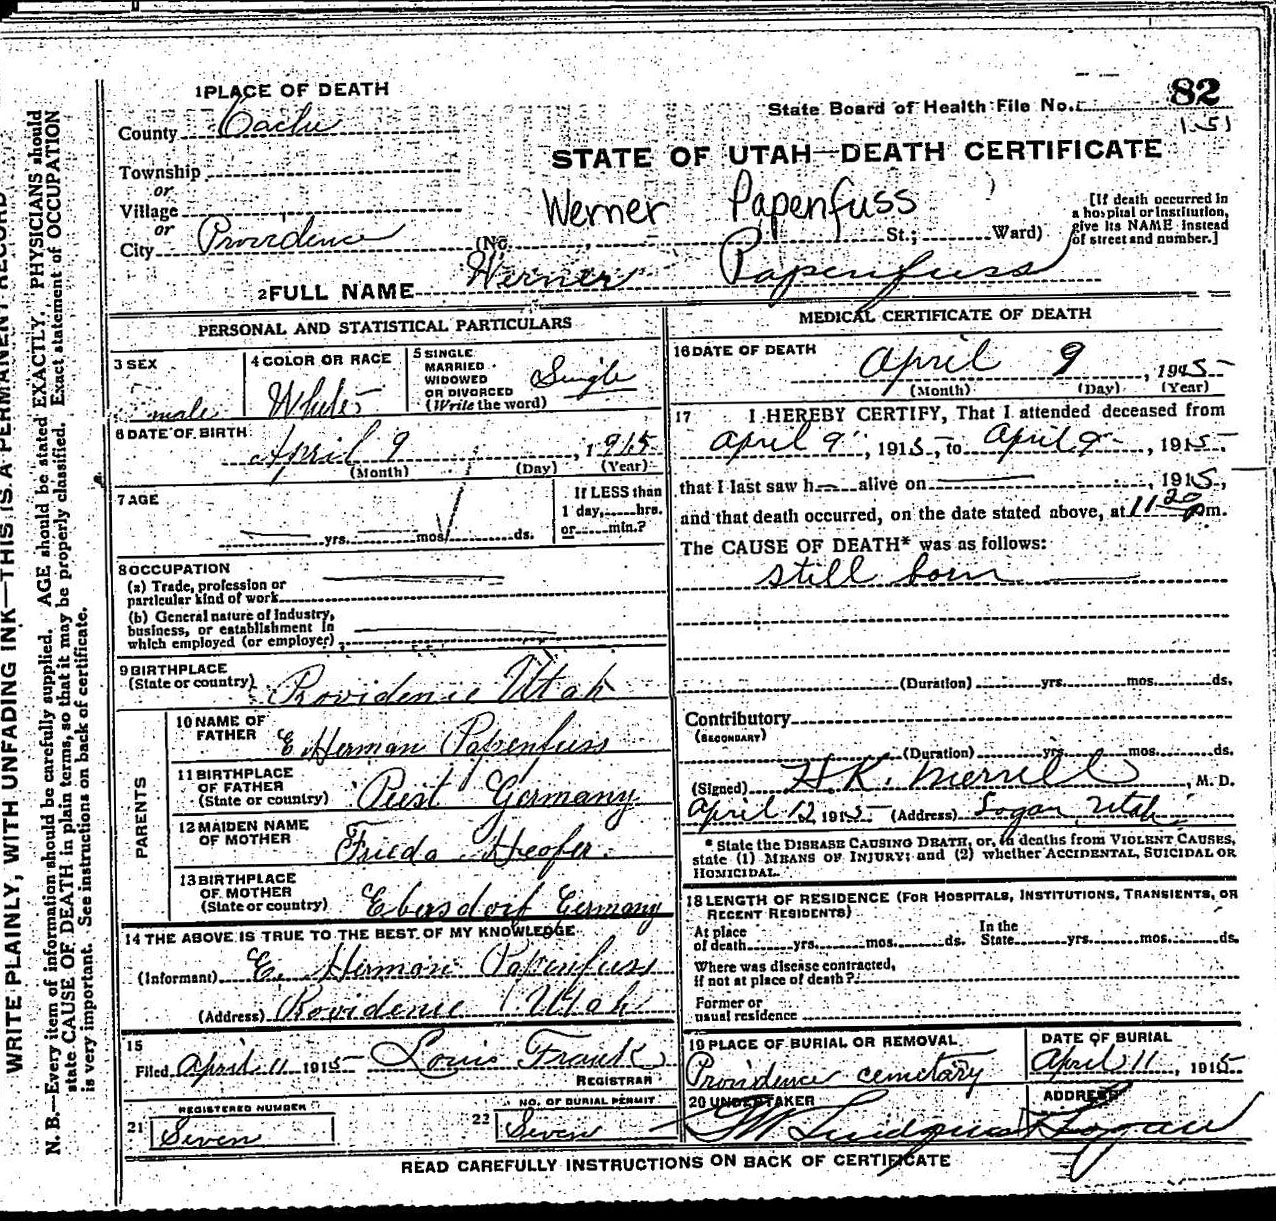 82
State Board of Health File No.
151
1 PLACE OF DEATH
County Cache
STATE OF UTAH—DEATH CERTIFICATE
Township
or
Village
or
City Providence
Werner Papenfuss
(No. , St.; Ward)
[If death occurred in
a hospital or institution,
give its NAME instead
of street and number.]
2 FULL NAME Werner Papenfuss
PERSONAL AND STATISTICAL PARTICULARS
3 SEX
male
4 COLOR OR RACE
White
5 SINGLE
MARRIED
WIDOWED
OR DIVORCED
(Write the word)
Single
6 DATE OF BIRTH
April 9, 1915
(Month) (Day) (Year)
7 AGE
yrs. mos. ds.
If LESS than
1 day, hrs.
or min.?
8 OCCUPATION
(a) Trade, profession or
particular kind of work
(b) General nature of industry,
business, or establishment in
which employed (or employer)
9 BIRTHPLACE
(State or country) Providence Utah
PARENTS
10 NAME OF
FATHER E. Herman Papenfuss
11 BIRTHPLACE
OF FATHER
(State or country) Germany
12 MAIDEN NAME
OF MOTHER Frieda
13 BIRTHPLACE
OF MOTHER
(State or country) Ebersdorf Germany
14 THE ABOVE IS TRUE TO THE BEST OF MY KNOWLEDGE
(Informant) E. Herman Papenfuss
(Address) Providence Utah
15
Filed April 11 1915 Louis Frank
REGISTRAR
REGISTERED NUMBER
21 Seven
NO. OF BURIAL PERMIT
22 Seven
MEDICAL CERTIFICATE OF DEATH
16 DATE OF DEATH
April 9, 1915
(Month) (Day) (Year)
17 I HEREBY CERTIFY, That I attended deceased from
April 9, 1915, to April 9, 1915
that I last saw h— alive on , 1915,
and that death occurred, on the date stated above, at 11 20 pm.
The CAUSE OF DEATH* was as follows:
still born
(Duration) yrs. mos. ds.
Contributory
(SECONDARY)
(Duration) yrs. mos. ds.
(Signed) H. K. Merrill, M. D.
April 12, 1915 (Address) Logan, Utah
* State the DISEASE CAUSING DEATH, or, in deaths from VIOLENT CAUSES,
state (1) MEANS OF INJURY; and (2) whether ACCIDENTAL, SUICIDAL OR
HOMICIDAL.
18 LENGTH OF RESIDENCE (FOR HOSPITALS, INSTITUTIONS, TRANSIENTS, OR
RECENT RESIDENTS)
At place
of death yrs. mos. ds.
In the
State yrs. mos. ds.
Where was disease contracted,
if not at place of death?
Former or
usual residence
19 PLACE OF BURIAL OR REMOVAL
Providence cemetary
DATE OF BURIAL
April 11, 1915
20 UNDERTAKER
ADDRESS
Logan
READ CAREFULLY INSTRUCTIONS ON BACK OF CERTIFICATE
WRITE PLAINLY, WITH UNFADING INK—THIS IS A PERMANENT RECORD
N. B.—Every item of information should be carefully supplied. AGE should be stated EXACTLY. PHYSICIANS should
state CAUSE OF DEATH in plain terms, so that it may be properly classified. Exact statement of OCCUPATION
is very important. See instructions on back of certificate.